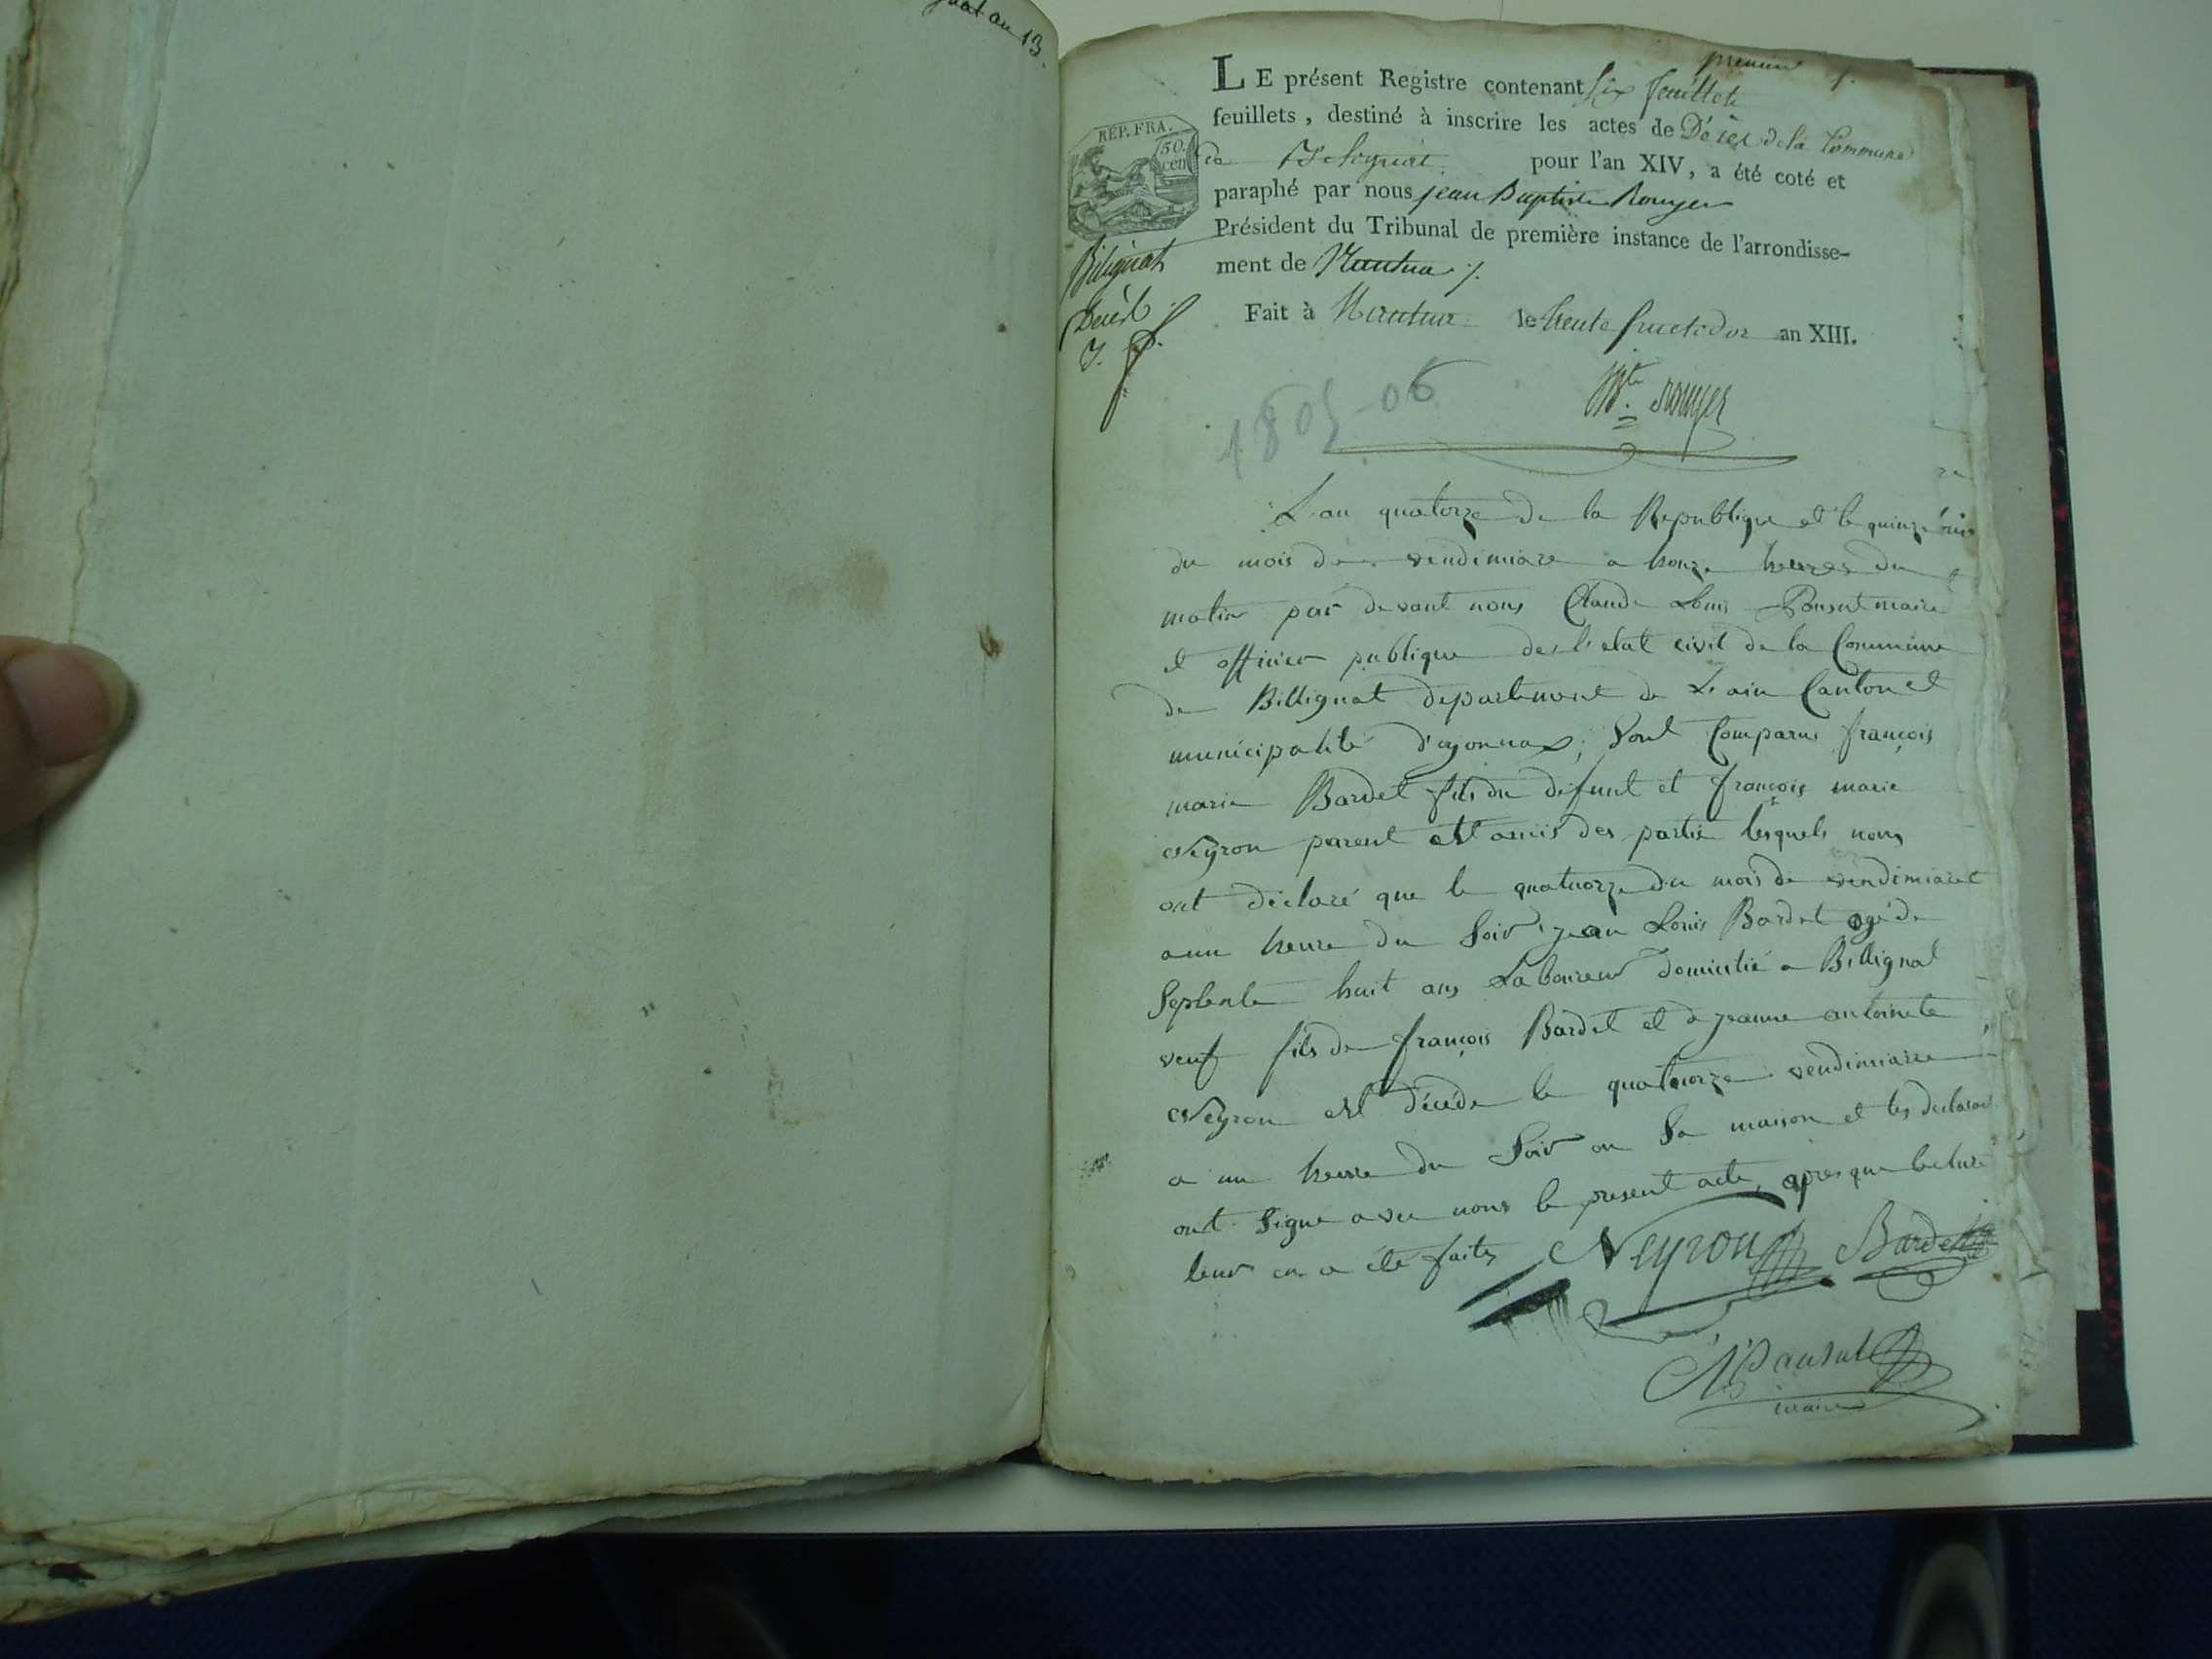 au 13.
premier
LE présent Registre contenant six feuillets
feuillets, destiné à inscrire les actes de Décès de la Commune
de pour l'an XIV, a été coté et
paraphé par nous jean Baptiste Rouyer
Président du Tribunal de première instance de l'arrondisse-
ment de Nantua
Fait à Nantua le trente fructidor an XIII.
RÉP. FRA.
50.
cen
Bilignat
Décès
Jbte. rouyer
1805-06
L'an quatorze de la Republique et le quinzième
du mois de vendimiare a honze heures du
matin par devant nous Claude Louis Ponsut maire
et officier publique de l'etat civil de la Commune
de Billignat departement de L'ain Canton et
municipalité d'oyonnax, Sont Comparus françois
marie Bardet fils du defunt et françois marie
Neyron parent et amis des partie lesquels nous
ont déclaré que le quatuorze du mois de vendimiare
a un heure du Soir jean Louis Bardet agé de
Septente huit ans Laboureur domicilié a Billignat
veuf fils de françois Bardet et de jeanne antoinete
Neyron est décéde le quatuorze vendimiaire
a un heure du Soir en Sa maison et les declarant
ont Signe avec nous le present acte, apres que lecture
leur en a été faite Neyron Bardet
Pansut
maire